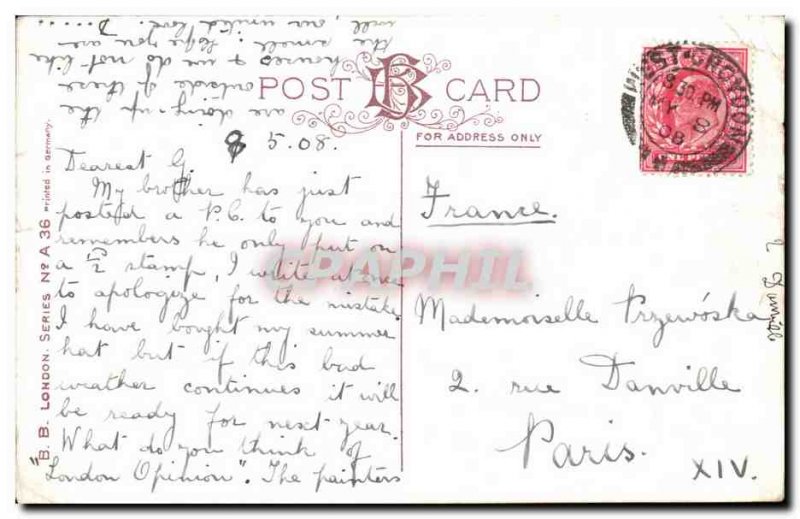 POST CARD
FOR ADDRESS ONLY
B. B. LONDON. SERIES No A 36 Printed in Germany.
8 5.08.
Dearest G.
My brother has just
posted a P.C. to you and
remembers he only put on
a 1/2 stamp, I write at once
to apologize for the mistake.
I have bought my summer
hat but if this bad
weather continues it will
be ready for next year.
What do you think of
"London Opinion". The painters
are doing-up the
outside of these
houses & we do not like
the smell. Hope you are
well, our united love.
France.
Mademoiselle Przewóska
2. rue Danville
Paris.
XIV.
WEST CROYDON
8.30 PM
MY 8
08
CPAPHIL